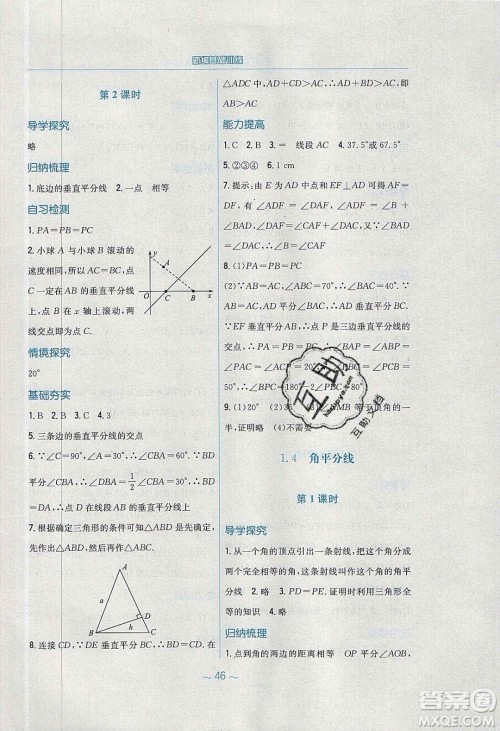 新编基础训练
第2课时
导学探究
略
归纳梳理
1. 底边的垂直平分线 2. 一点 相等
自习检测
1. PA=PB=PC
2. 小球 A 与小球 B 滚动的
速度相同,所以 AC=BC,点
C 一定在 AB 的垂直平分线
上,点 B 在 x 轴上滚动,两
线交点即为点 C
y
A
O
C
B
x
情境探究
20°
基础夯实
1. B 2. B 3. C 4. 3
5. 三条边的垂直平分线的交点
6. ∵∠C=90°,∠A=30°,∴∠CBA=60°. ∵BD
平分∠ABC,∴∠DBA=1/2∠CBA=30°=∠A.
∴AD=BD
7. 根据确定三角形的条件可知是先确定,
先作出△ABD,最后作出△ABC
A
D
h
B
C
8. 连接 CD,∵DE 垂直平分 BC,∴BD=CD. 在
△ADC 中,AD+CD>AC,∴AD+BD>AC,即
AB>AC
能力提高
1. C 2. B 3. = 线段 AC 4. 37.5°或 67.5°
5. ②③④ 6. 1 cm
7. 提示:由 E 为 AD 中点和 EF⊥AD 可得 AF=
DF,有∠ADF=∠DAF,∴∠DAF=∠DAC+
∠CAF,∠ADF=∠B+
8. (1)PA=PB=PC
(2)∵AB=AC,∴∠B
∠BAC=180°-2×70°=40°
∵EF 垂直平分 AB,∴点 P 是三边垂直平分线
的交点,∴PA=PB=PC,∴∠ABP=∠BAP,
∠PBC=180°-2
9. (1)20°
半,证明略 (4)不需要
1.4 角平分线
第1课时
导学探究
1. 从一个角的顶点引出一条射线,把这个角分成
两个完全相等的角,这条射线叫作这个角的角平
分线 2. 略 3. 略 4. PD=PE. 证明时利用三角形全
等的知识 (1)略 (2)略
归纳梳理
1. 点到角的两边的距离相等 OP 平分∠AOB,
~ 46 ~
互助
互助文档
答案圈
MXQE.COM